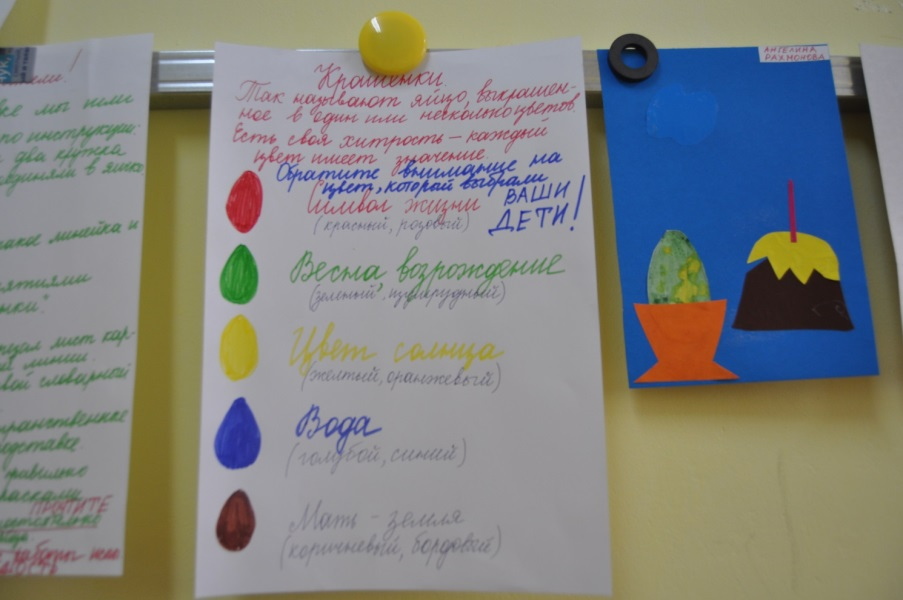 ке мы шли
по инструкции:
два кружка
единяли в яйко
такое линейка и
ятиями
нки".
лист кар-
линии.
вей словарной
транственнке
подставке.
равилько
красками
Крашенки
Так называют яйцо, выкрашен-
ное в один или несколько цветов.
Есть своя хитрость – каждый
цвет имеет значение.
Обратите внимание на
цвет, который выбрали
ВАШИ
ДЕТИ!
Символ жизни
(красный, розовый)
Весна, возрождение
(зелёный, изумрудный)
Цвет солнца
(желтый, оранжевый)
Вода
(голубой, синий)
Мать - земля
(коричневый, бордовый)
АНГЕЛИНА
РАХМОНОВА